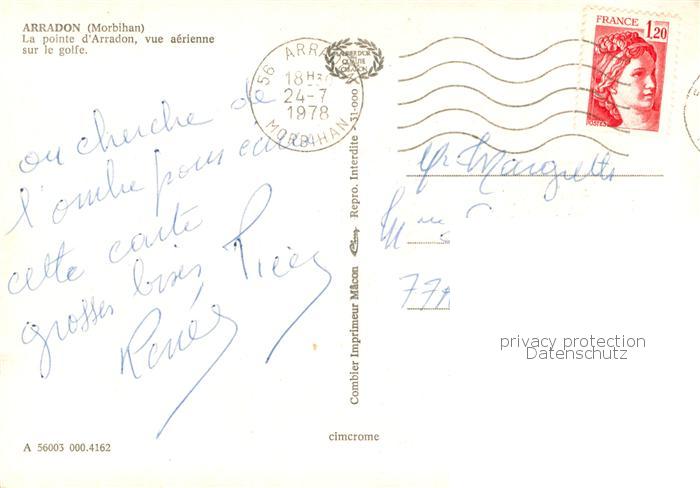 ARRADON (Morbihan)
La pointe d'Arradon, vue aérienne
sur le golfe.
56 ARRADON
18H30
24-7
1978
MORBIHAN
FRANCE 1,20
on cherche de
l'ombre pour
cette carte
grosses bises
Renée
Mr
Mme
77
Combier Imprimeur Mâcon Cim Repro. Interdite - 31-000
privacy protection
Datenschutz
cimcrome
A 56003 000.4162